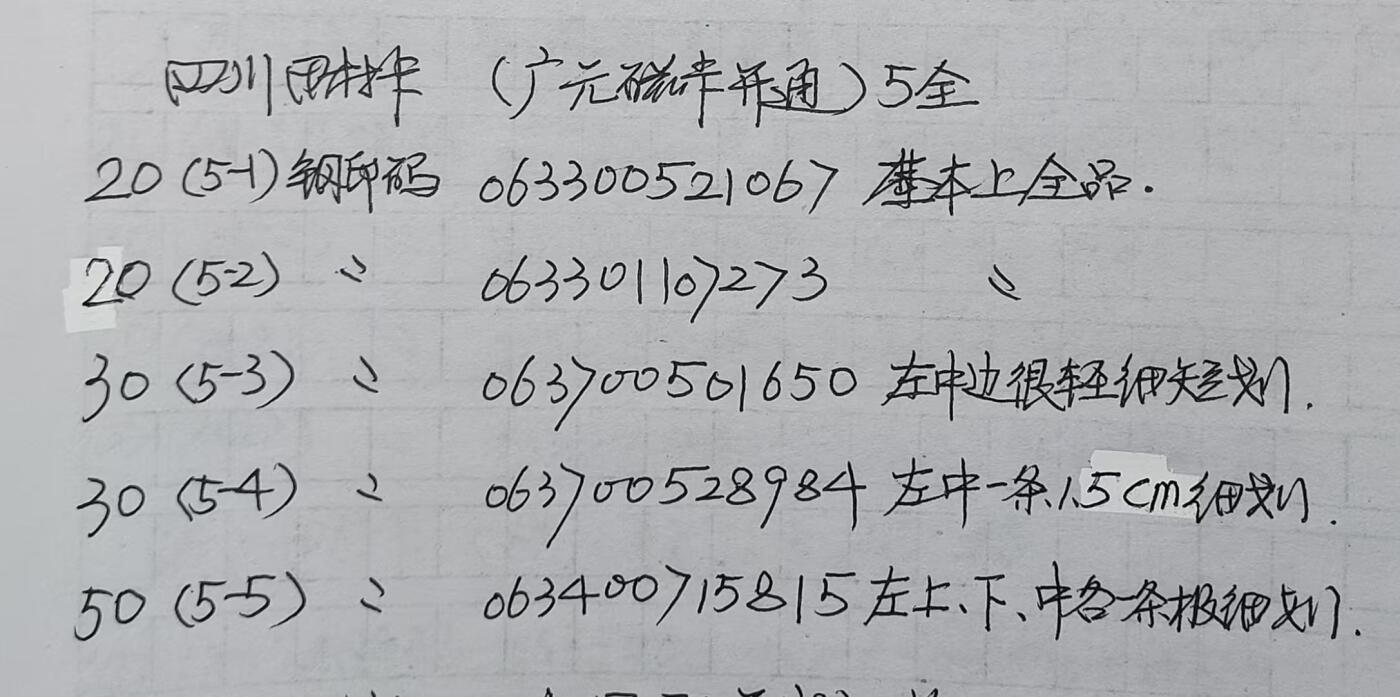 四川田村卡 (广元磁卡开通) 5全
20 (5-1) 钢印码 063300521067 基本上全品.
20 (5-2) 〃 063301107273 〃
30 (5-3) 〃 063700501650 左中边很轻细短划.
30 (5-4) 〃 063700528984 左中一条1.5cm细划.
50 (5-5) 〃 063400715815 左上、下、中各一条极细划.